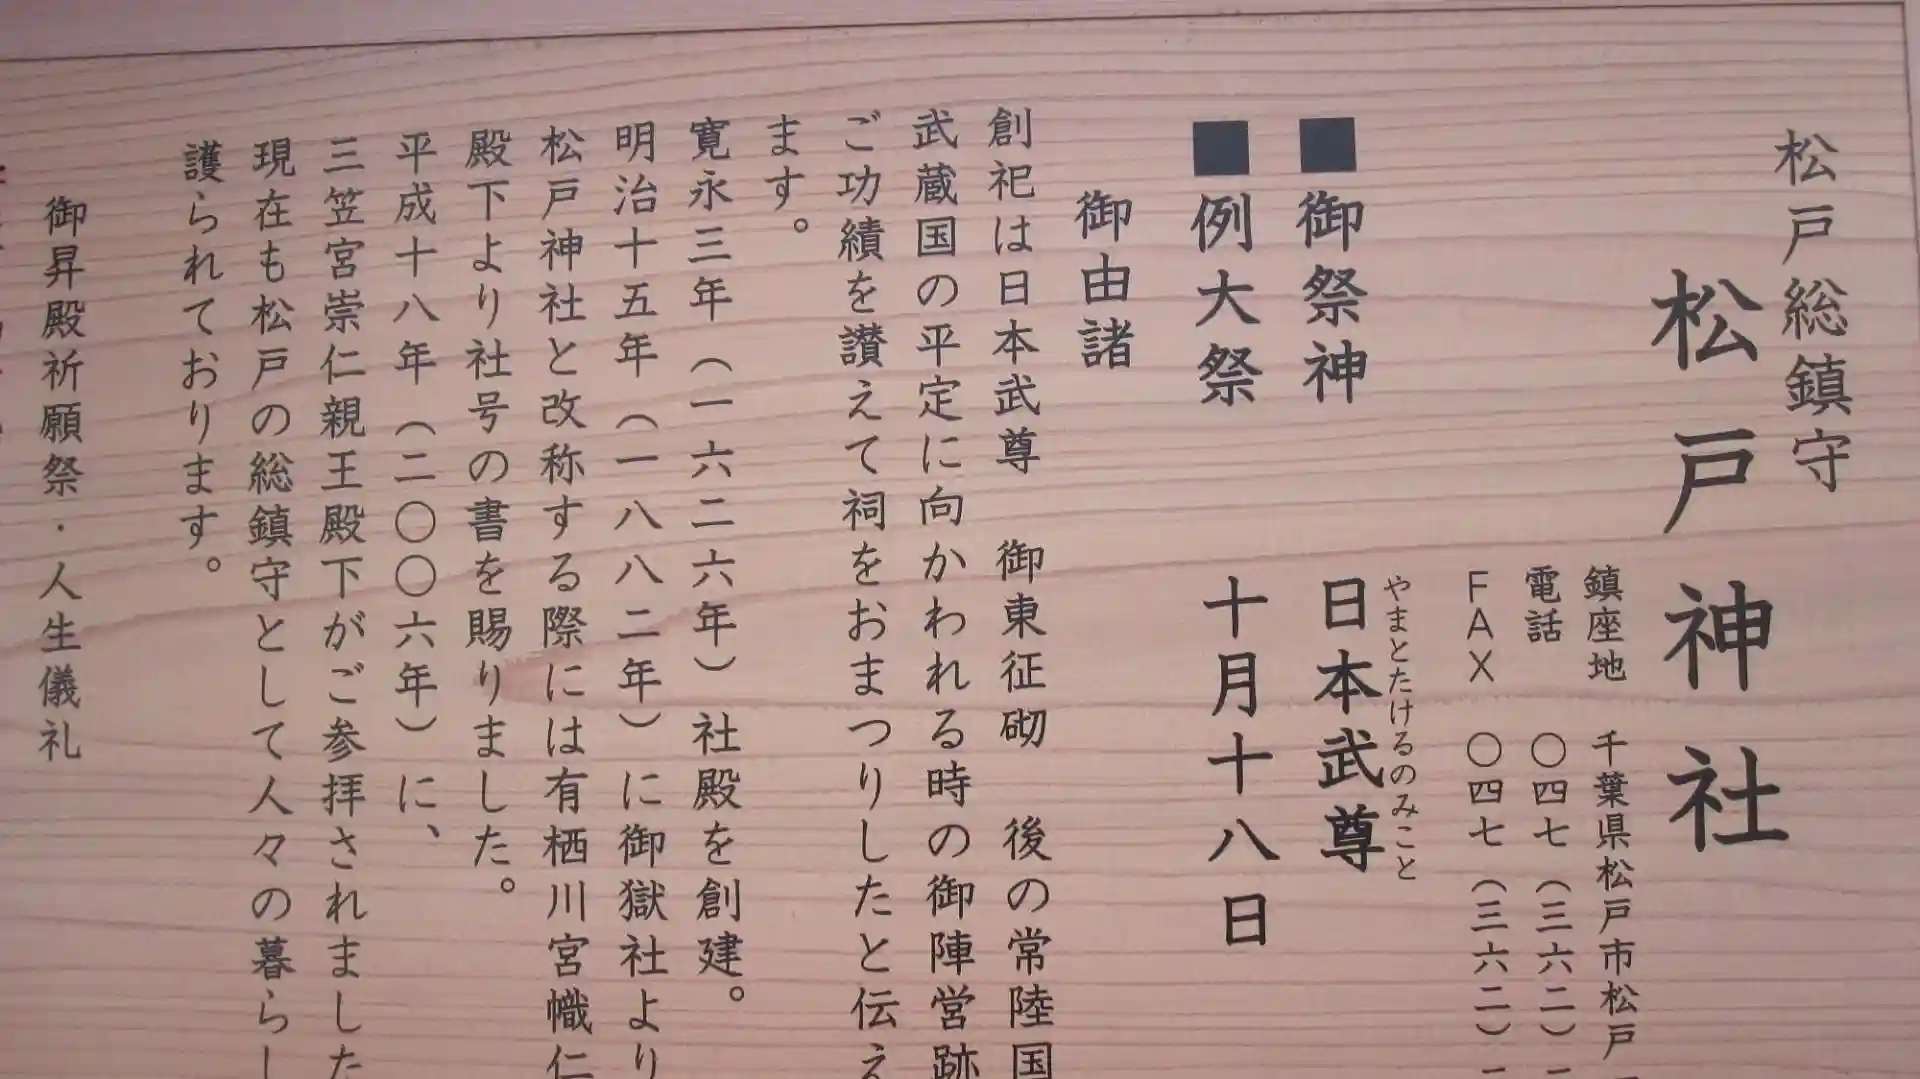 松戸総鎮守
松戸神社
鎮座地 千葉県松戸市松戸
電話 〇四七(三六二)
FAX 〇四七(三六二)
やまとたけるのみこと
■御祭神 日本武尊
■例大祭 十月十八日
御由諸
創祀は日本武尊 御東征砌 後の常陸国
武蔵国の平定に向かわれる時の御陣営跡
ご功績を讃えて祠をおまつりしたと伝え
ます。
寛永三年(一六二六年)社殿を創建。
明治十五年(一八八二年)に御獄社より
松戸神社と改称する際には有栖川宮幟仁
殿下より社号の書を賜りました。
平成十八年(二〇〇六年)に、
三笠宮崇仁親王殿下がご参拝されました
現在も松戸の総鎮守として人々の暮らし
護られております。
御昇殿祈願祭・人生儀礼